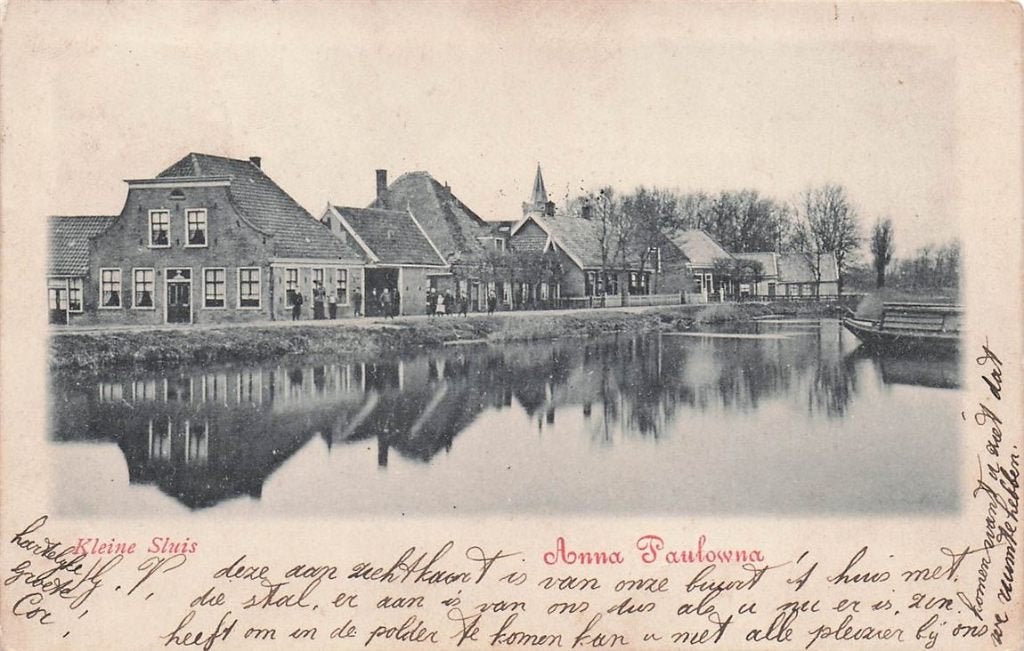 Kleine Sluis
Anna Paulowna
hartelyke
Groete
Cor
G. V. deze aanzichtkaart is van onze buurt 't huis met
die stal, er aan is van ons dus als u nu er is, zin
heeft om in de polder te komen kan u met alle plezier bij ons
komen want u ziet dat
we ruimte hebben.